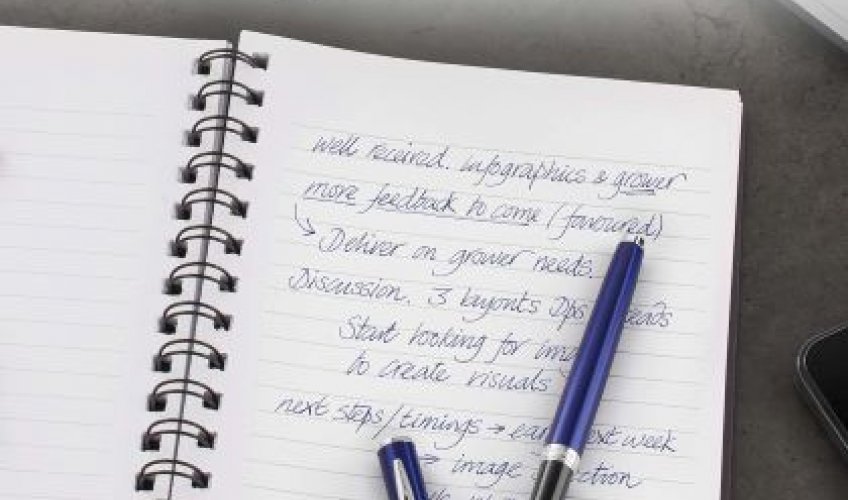 well received. Infographics & grower
more feedback to come (favoured)
↳ Deliver on grower needs.
Discussion. 3 layouts Dps
Start looking for
to create visuals
next steps/timings → next week
→ image